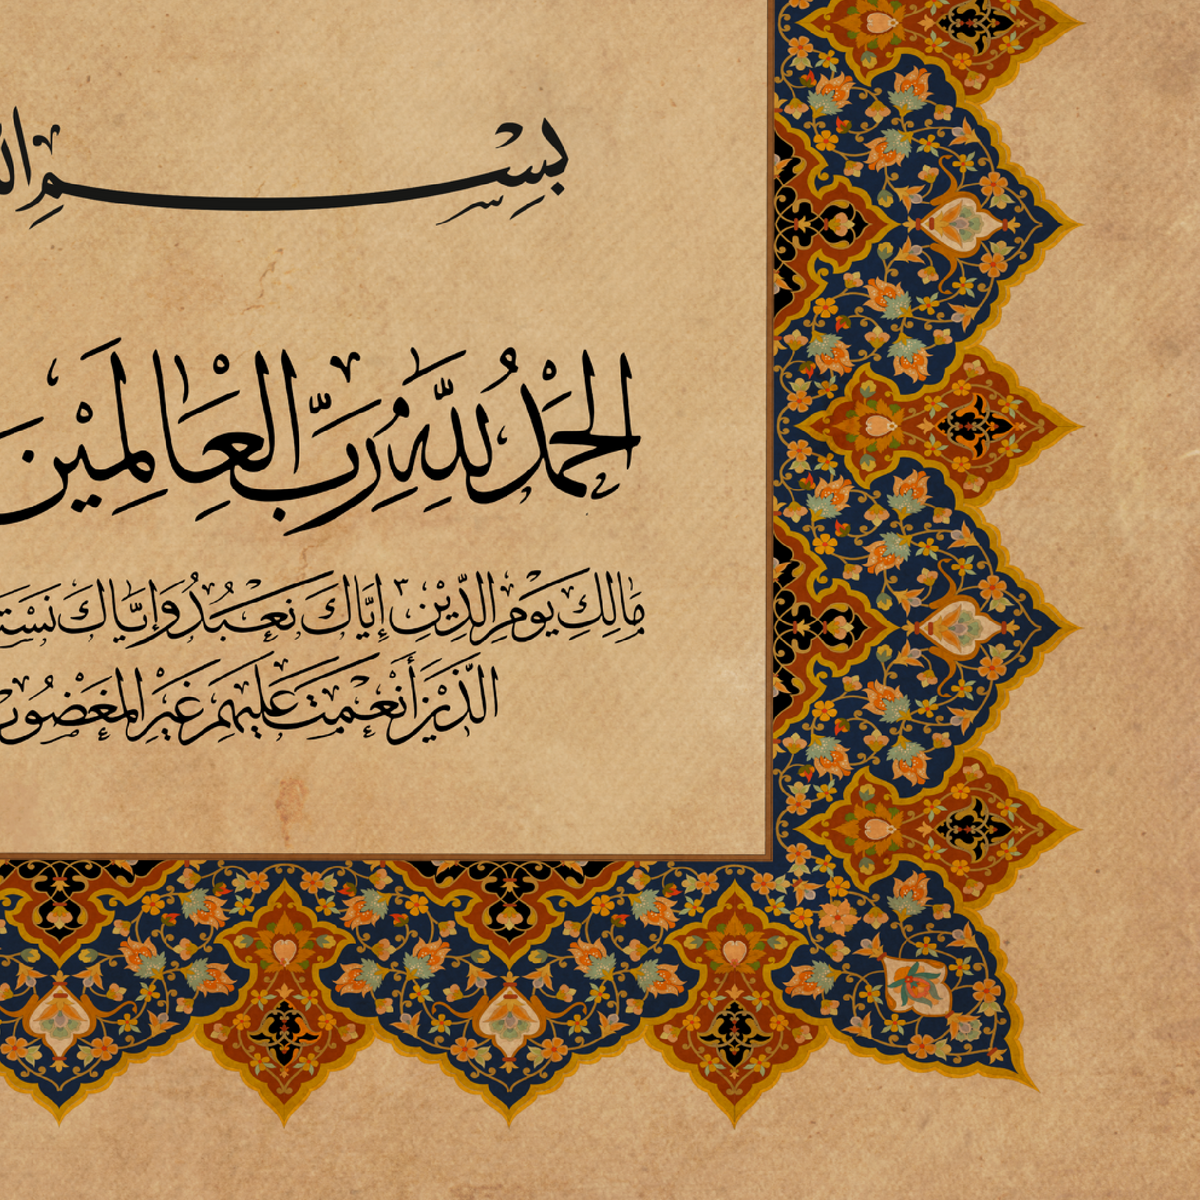 بِسْمِ
الحَمْدُ لِلَّهِ رَبِّ العَالَمِيْنَ
مَالِكِ يَوْمِ الدِّيْنِ إِيَّاكَ نَعْبُدُ وَإِيَّاكَ
الَّذِيْنَ أَنْعَمْتَ عَلَيْهِمْ غَيْرِ